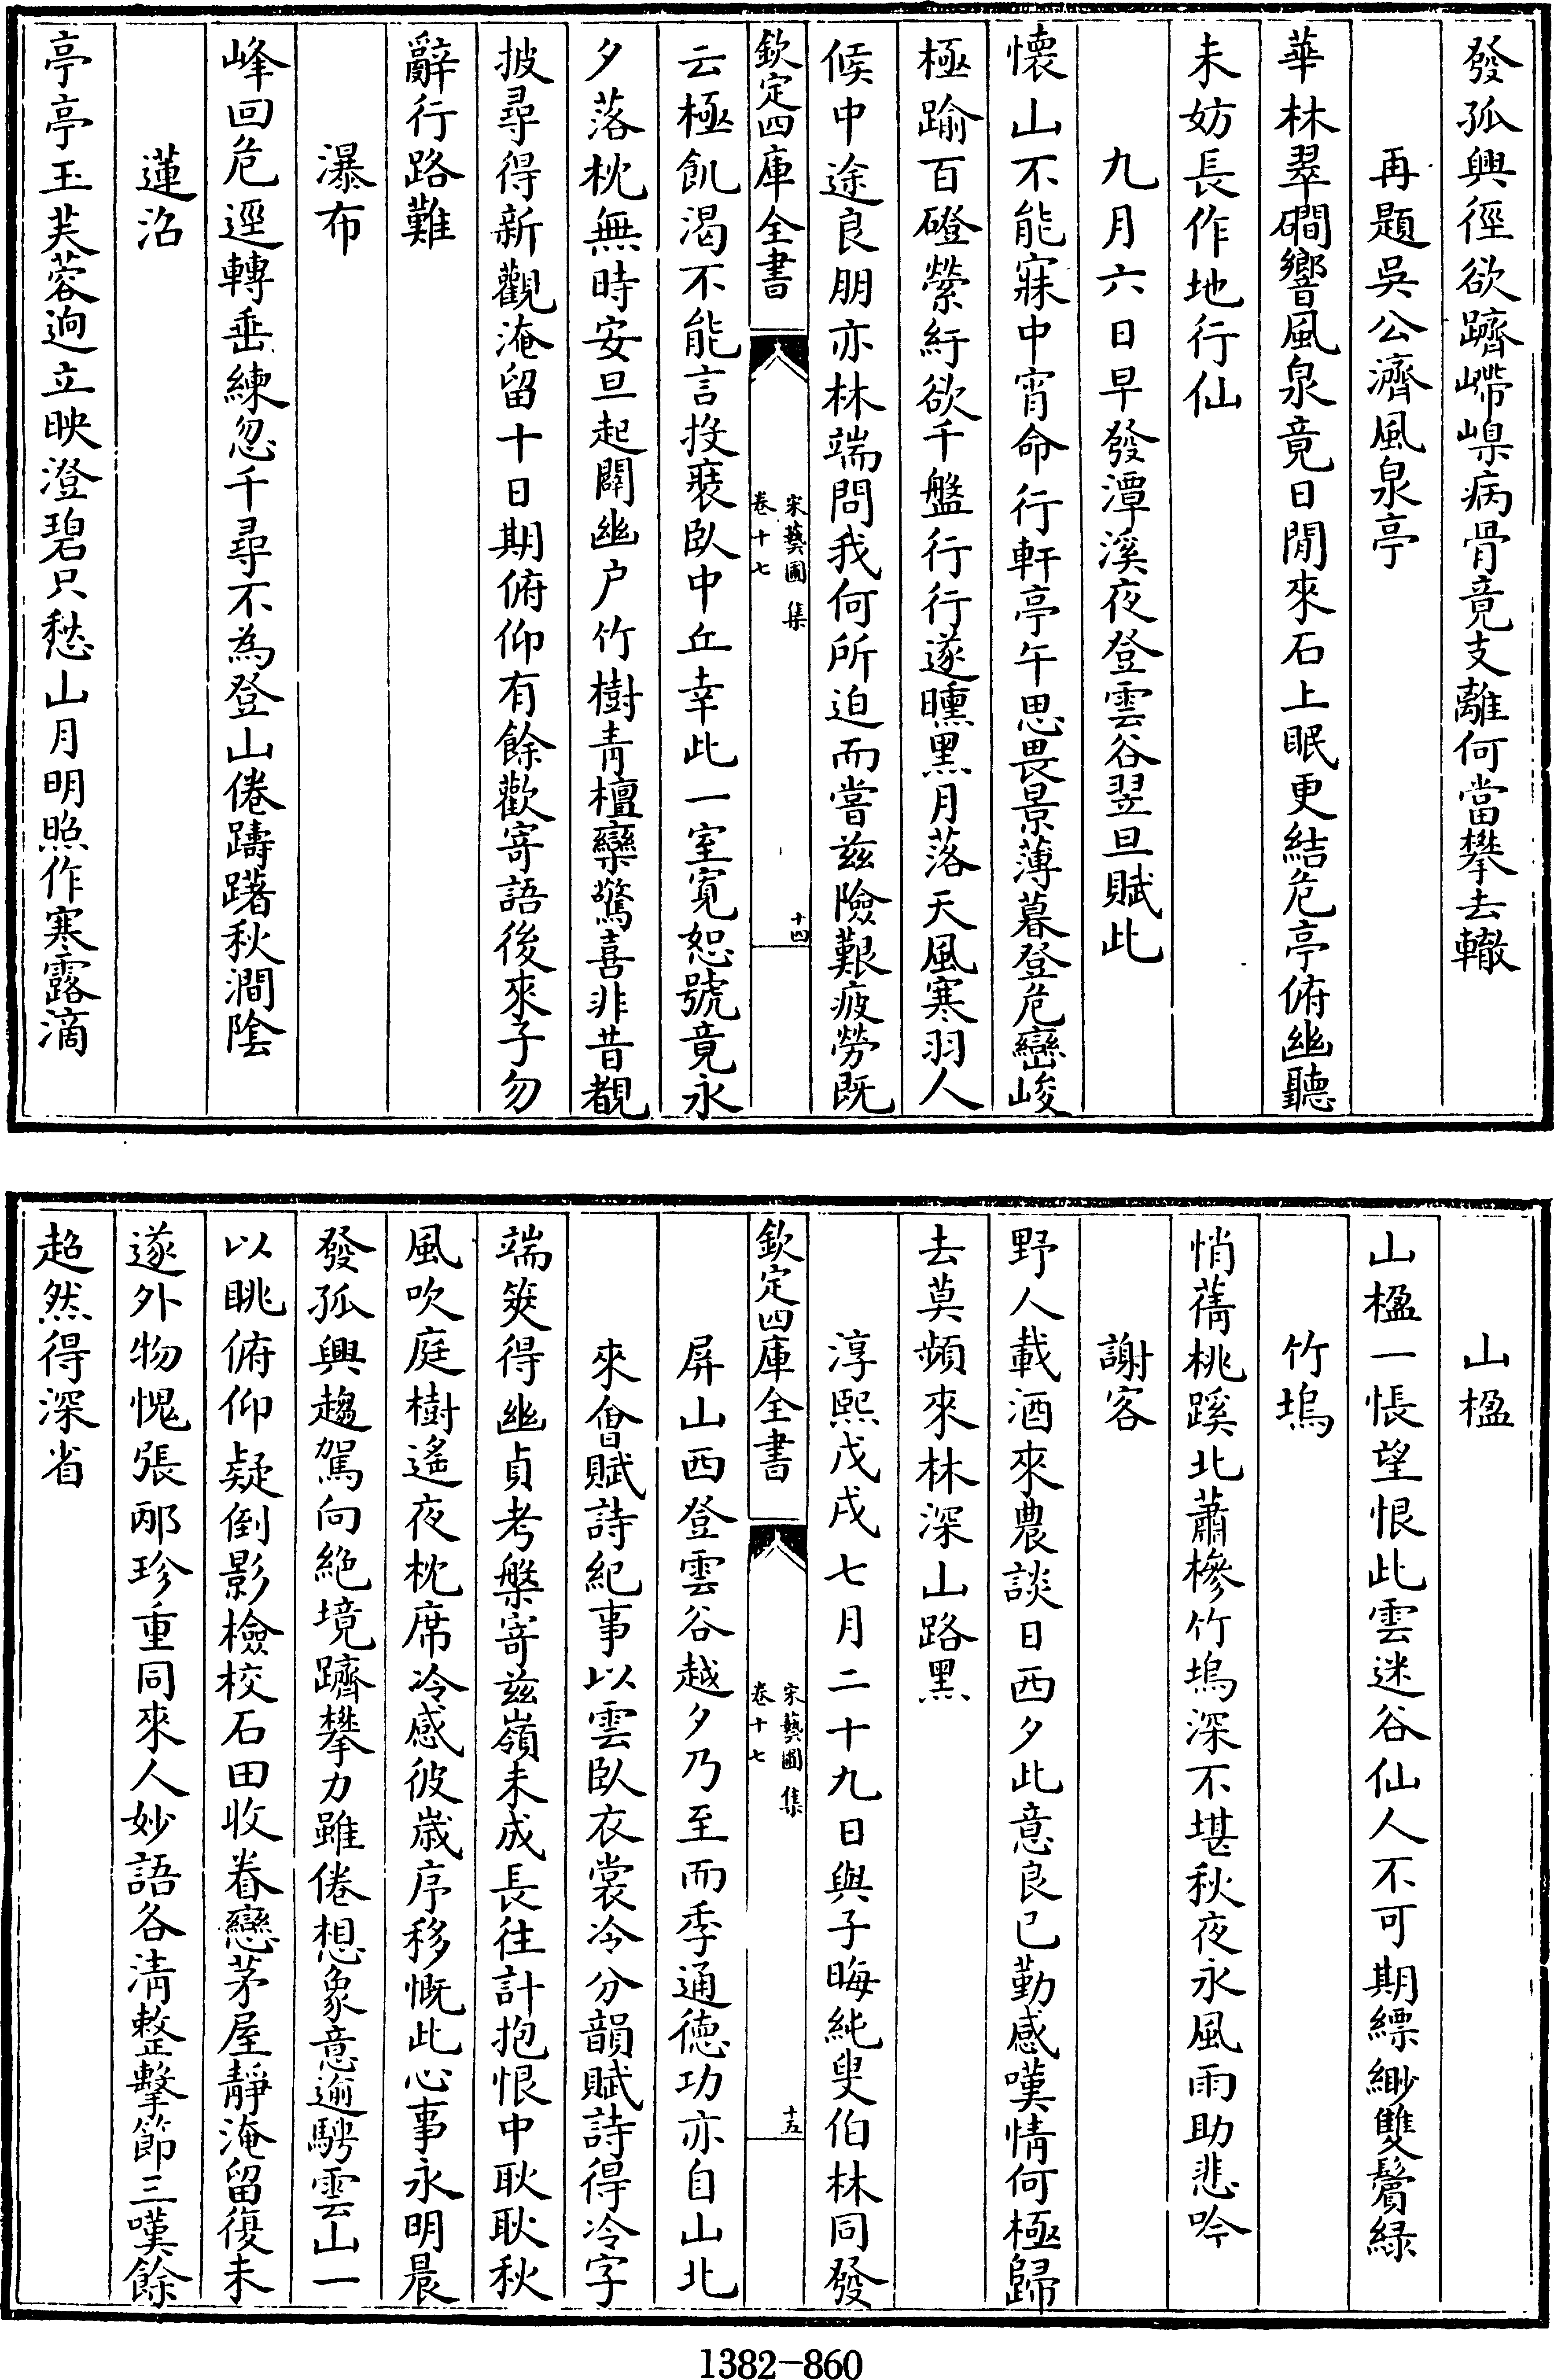 發孤興徑欲躋㟙嵲病骨竟支離何當攀去轍
再題吳公濟風泉亭
華林翠磵響風泉竟日閒來石上眠更結危亭俯幽聽
未妨長作地行仙
九月六日早發潭溪夜登雲谷翌旦賦此
懷山不能寐中宵命行軒亭午思畏景薄暮登危巒峻
極踰百磴縈紆欲千盤行行遂曛黑月落天風寒羽人
候中途良朋亦林端問我何所迫而嘗兹險艱疲勞既
欽定四庫全書
宋藝圃集
卷十七
十四
云極飢渴不能言投裘臥中丘幸此一室寛怒號竟永
夕落枕無時安旦起闢幽户竹樹青檀欒驚喜非昔覩
披尋得新觀淹留十日期俯仰有餘歡寄語後來子勿
辭行路難
瀑布
峰回危逕轉垂練忽千尋不為登山倦躊躇秋澗陰
蓮沼
亭亭玉芙蓉迥立映澄碧只愁山月明照作寒露滴
山楹
山楹一悵望恨此雲迷谷仙人不可期縹緲雙鬢綠
竹塢
悄蒨桃蹊北蕭槮竹塢深不堪秋夜永風雨助悲吟
謝客
野人載酒來農談日西夕此意良已勤感嘆情何極歸
去莫頻來林深山路黑
淳熙戊戌七月二十九日與子晦純叟伯林同發
欽定四庫全書
宋藝圃集
卷十七
十五
屏山西登雲谷越夕乃至而季通德功亦自山北
來會賦詩紀事以雲臥衣裳冷分韻賦詩得冷字
端筴得幽貞考槃寄兹嶺未成長往計抱恨中耿耿秋
風吹庭樹遙夜枕席冷感彼歲序移慨此心事永明晨
發孤興趨駕向絶境躋攀力雖倦想象意逾騁雲山一
以眺俯仰疑倒影檢校石田收眷戀茅屋靜淹留復未
遂外物愧張邴珍重同來人妙語各清整擊節三嘆餘
超然得深省
1382-860